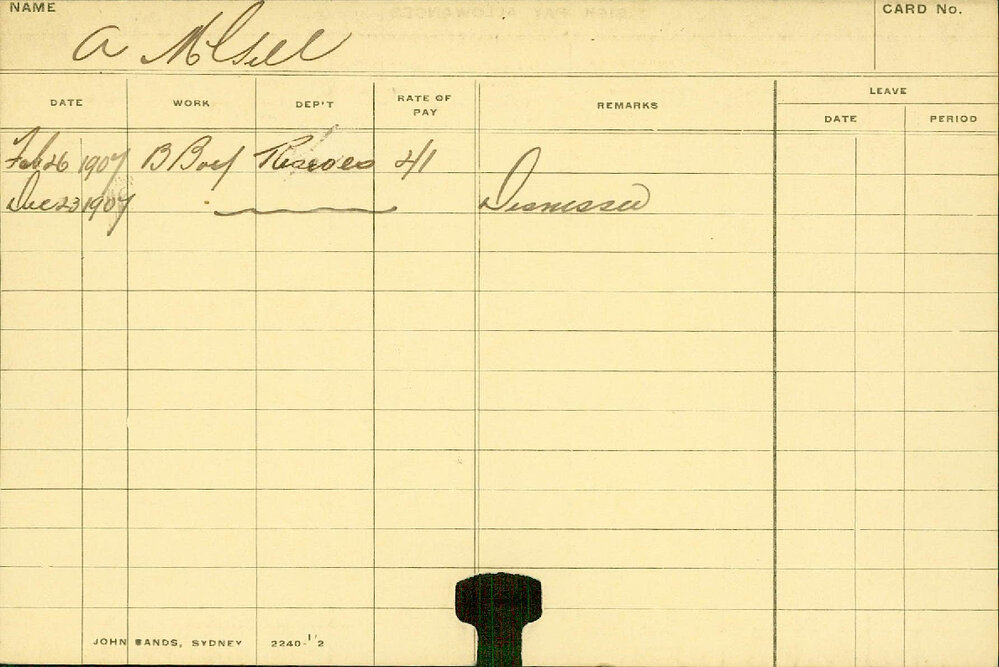 NAME
CARD No.
A McGill
DATE WORK DEP'T RATE OF PAY REMARKS LEAVE
DATE PERIOD
Feb 26 1907 B Boy 4/1
Dec 23 1907 Dismissed
JOHN SANDS, SYDNEY 2240-1'2